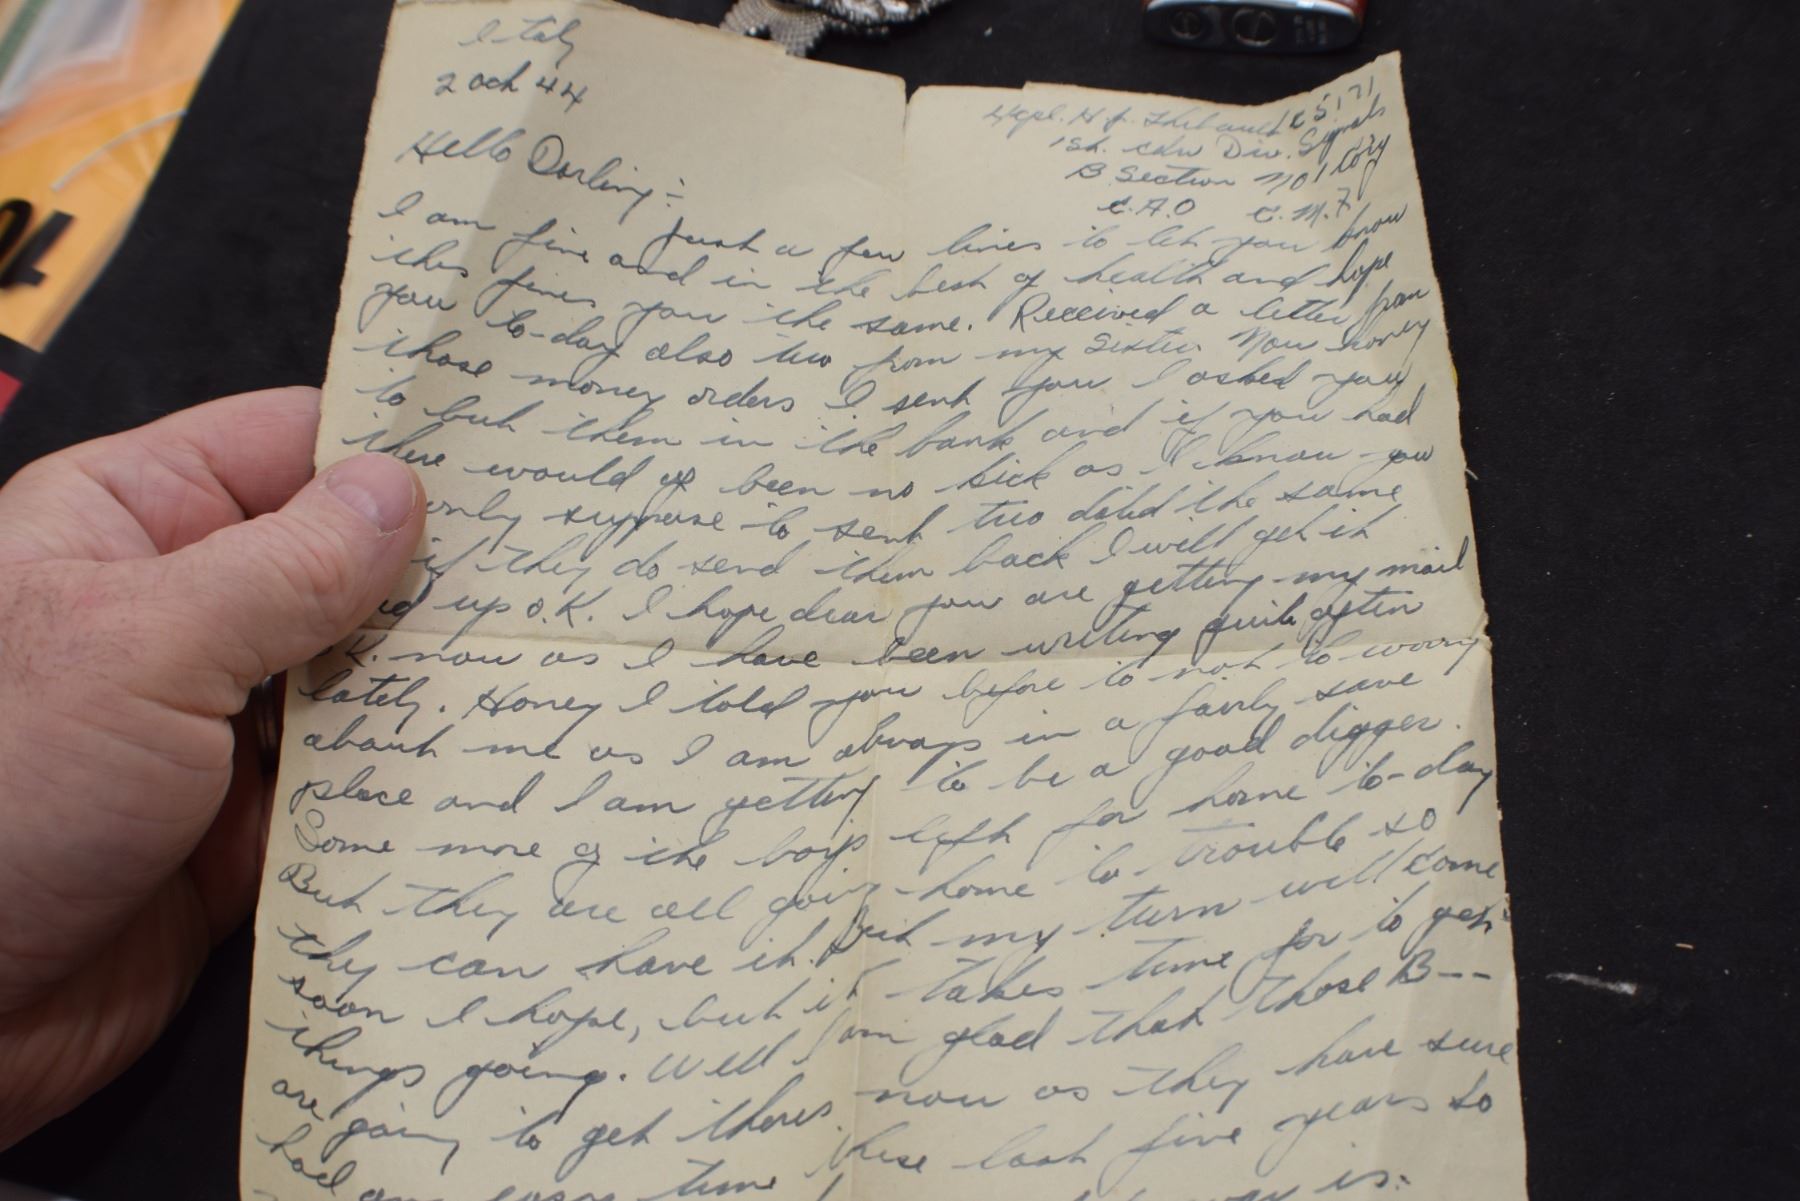 Italy
2 Oct 44
H. J. Thibault C5171
1st. Cdn Div. Signals
B Section No 1 Coy
C.A.O C.M.F
Hello Darling:-
Just a few lines to let you know
I am fine and in the best of health and hope
this fines you the same. Received a letter from
you to-day also two from my Sister. Now honey
those money orders I sent you I asked you
to but them in the bank and if you had
there would of been no kick as I know you
only suppose to sent two dated the same
if they do send them back I will get it
up O.K. I hope dear you are getting my mail
K. now as I have been writing quite often
lately. Honey I told you before to not to worry
about me as I am always in a fairly save
place and I am getting to be a good digger.
Some more of the boys left for home to-day
But they are all going home to trouble so
they can have it. But my turn will come
soon I hope, but it takes time for to get
things going. Well I am glad that those B---
are going to get theres now as they have sure
had our time these last five years so
is.